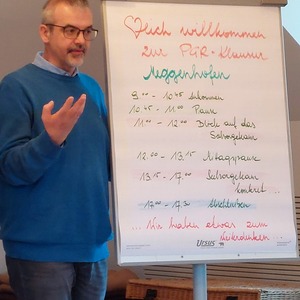 ♡lich willkommen
zur PGR-Klausur
Meggenhofen
9.00 - 10.45 Ankommen
10.45 - 11.00 Pause
11.00 - 12.00 Blick auf das
Seelsorgeteam
12.00 - 13.15 Mittagspause
13.15 - 17.00 Seelsorgeteam
konkret...
17.00 - 17.30 Abschluss
... Wir haben etwas zum